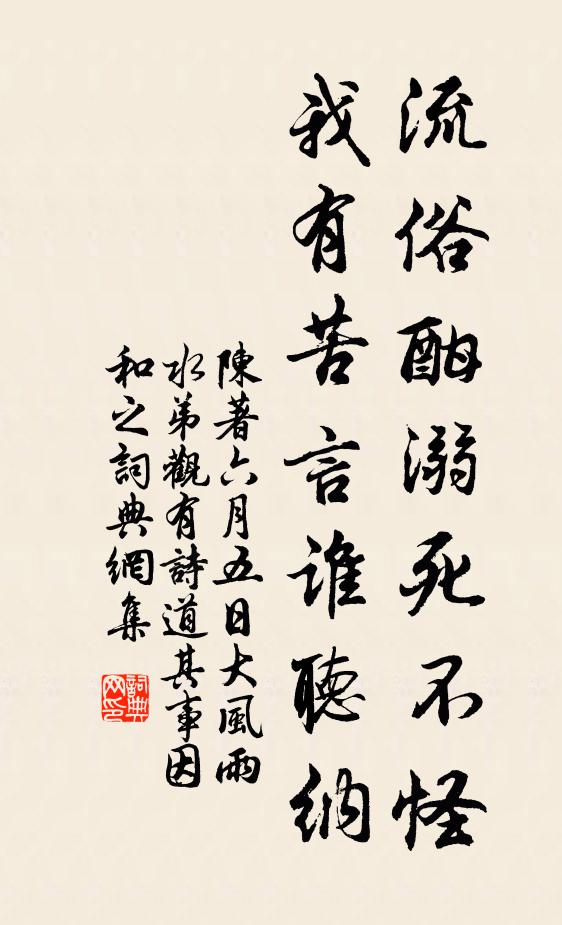 流俗酣溺死不怪
我有苦言誰聴納
陳著六月五日大風雨
水弟觀有詩道其事因
和之詞典網集
詞典
网印